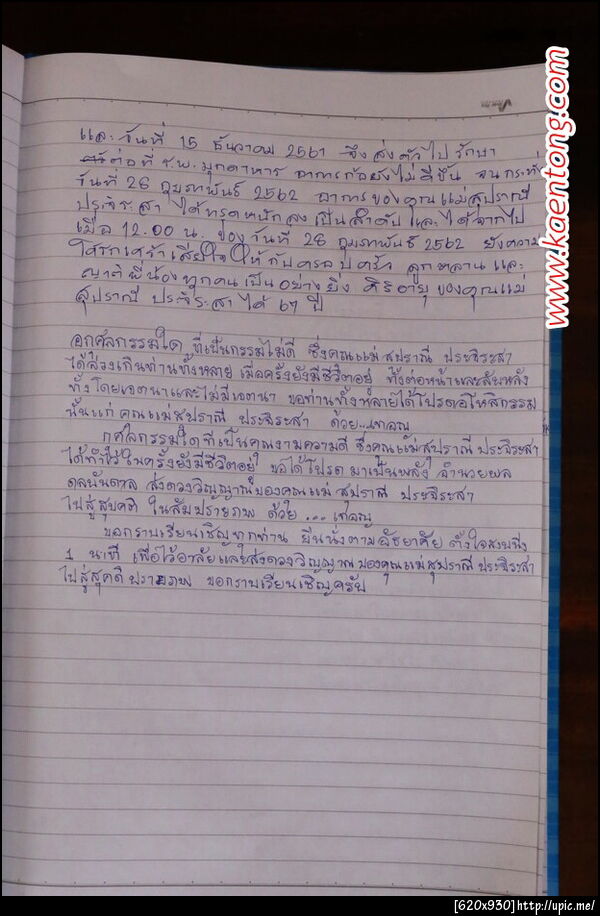 และ วันที่ 15 ธันวาคม 2561 จึงส่งตัวไปรักษา
ต่อที่ ร.พ. มุกดาหาร อาการก็ยังไม่ดีขึ้น จนกระทั่ง
วันที่ 26 กุมภาพันธ์ 2562 อาการของคุณแม่สุปราณี
ประจิระสา ได้ทรุดหนักลงเป็นลำดับ และได้จากไป
เมื่อ 12.00 น. ของวันที่ 26 กุมภาพันธ์ 2562 ยังความ
โศกเศร้าเสียใจให้กับครอบครัว ลูกหลานและ
ญาติพี่น้องทุกคนเป็นอย่างยิ่ง สิริอายุของคุณแม่
สุปราณี ประจิระสา ได้ 67 ปี
อกุศลกรรมใด ที่เป็นกรรมไม่ดี ซึ่งคุณแม่สุปราณี ประจิระสา
ได้ล่วงเกินท่านทั้งหลาย เมื่อครั้งยังมีชีวิตอยู่ ทั้งต่อหน้าและลับหลัง
ทั้งโดยเจตนาและไม่มีเจตนา ขอท่านทั้งหลายได้โปรดอโหสิกรรม
นั้นแก่ คุณแม่สุปราณี ประจิระสา ด้วย...เทอญ
กุศลกรรมใดที่เป็นคุณงามความดี ซึ่งคุณแม่สุปราณี ประจิระสา
ได้ทำไว้ในครั้งยังมีชีวิตอยู่ ขอได้โปรดมาเป็นพลัง อำนวยผล
ดลบันดาล ส่งดวงวิญญาณของคุณแม่ สุปราณี ประจิระสา
ไปสู่สุขคติ ในสัมปรายภพ ด้วย ... เทอญ
ขอกราบเรียนเชิญทุกท่าน ยืนนั่งตามอัธยาศัย ตั้งใจสงบนิ่ง
1 นาที เพื่อไว้อาลัยและส่งดวงวิญญาณของคุณแม่สุปราณี ประจิระสา
ไปสู่สุคติ ปรายภพ ขอกราบเรียนเชิญครับ
www.kaentong.com
[620x930]http://upic.me/